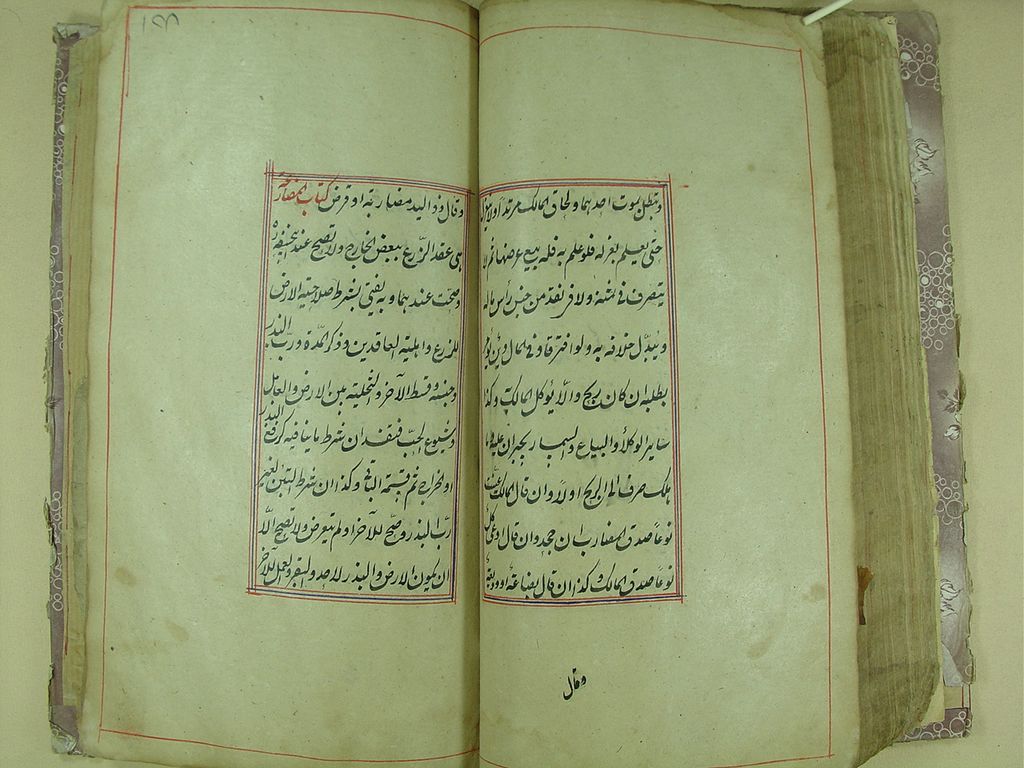 وتبطل بموت احدهما ولحاق المالك مرتدا ولا ينعزل
حتى يعلم بعزله فلو علم به فله بيع عرضها ثم لا
يتصرف في ثمنه ولا في نقد من جنس رأس ماله
ويبدل خلافه به ولو افترقا وفي المال دين
بطلبه ان كان ربح والا يوكل المالك به وكذا
سائر الوكلاء والبياع والسمسار يجبران عليه وما
هلك صرف الى الربح اولا وان قال المالك عينت
نوعا صدق المضارب ان جحد وان قال كل
نوعا صدق المالك وكذا ان قال بضاعة او وديعة
وقال
وقال ذو اليد مضاربة او قرض كتاب المزارعة
هي عقد الزرع ببعض الخارج ولا تصح عند ابي حنيفة ره
وصحت عندهما وبه يفتى بشرط صلاحية الارض
للزرع واهلية العاقدين وذكر المدة ورب البذر
وجنسه وقسط الآخر والتخلية بين الارض والعامل
وشيوع الحب فيفسد ان شرط ما ينافيه كرفع البذر
او الخراج ثم قسمة الباقي وكذا ان شرط التبن لغير
رب البذر وصح للآخر او لم يتعرض ولا تصح الا
ان يكون الارض والبذر لاحد والبقر والعمل للآخر